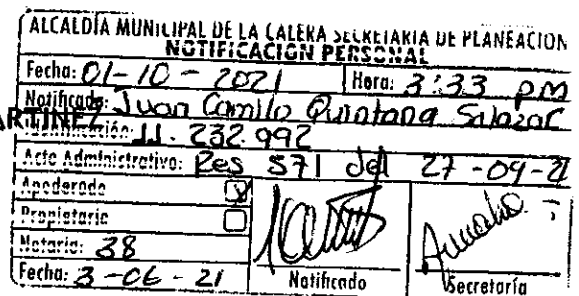 ALCALDÍA MUNICIPAL DE LA CALERA SECRETARIA DE PLANEACIÓN
NOTIFICACIÓN PERSONAL
Fecha: 01-10-2021 Hora: 3:33 pm
Notificado: Juan Camilo Quintana Salazar
ARTINEZ
11.232.992
Acto Administrativo: Res 571 del 27-09-21
Apoderado X
Propietario
Notaria: 38
Fecha: 3-06-21 Notificado Secretaría